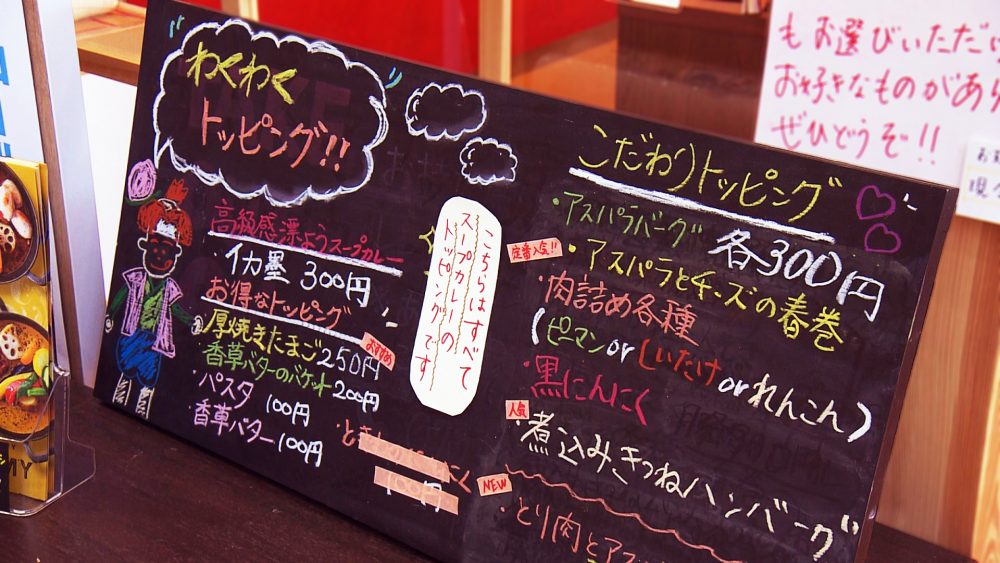 わくわく
トッピング!!
高級感漂ようスープカレー
・イカ墨 300円
お得なトッピング
・厚焼きたまご 250円
おすすめ
・香草バターのバケット 200円
・パスタ 100円
・香草バター 100円
こちらはすべて
スープカレーの
トッピングです
こだわりトッピング
各300円
・アスパラバーグ
定番人気!!
・アスパラとチーズの春巻
・肉詰め各種
(ピーマン or しいたけ or れんこん)
・黒にんにく
人気
・煮込みきつねハンバーグ
NEW
・とり肉とアス
もお選びいただ
お好きなものがあ
ぜひどうぞ!!